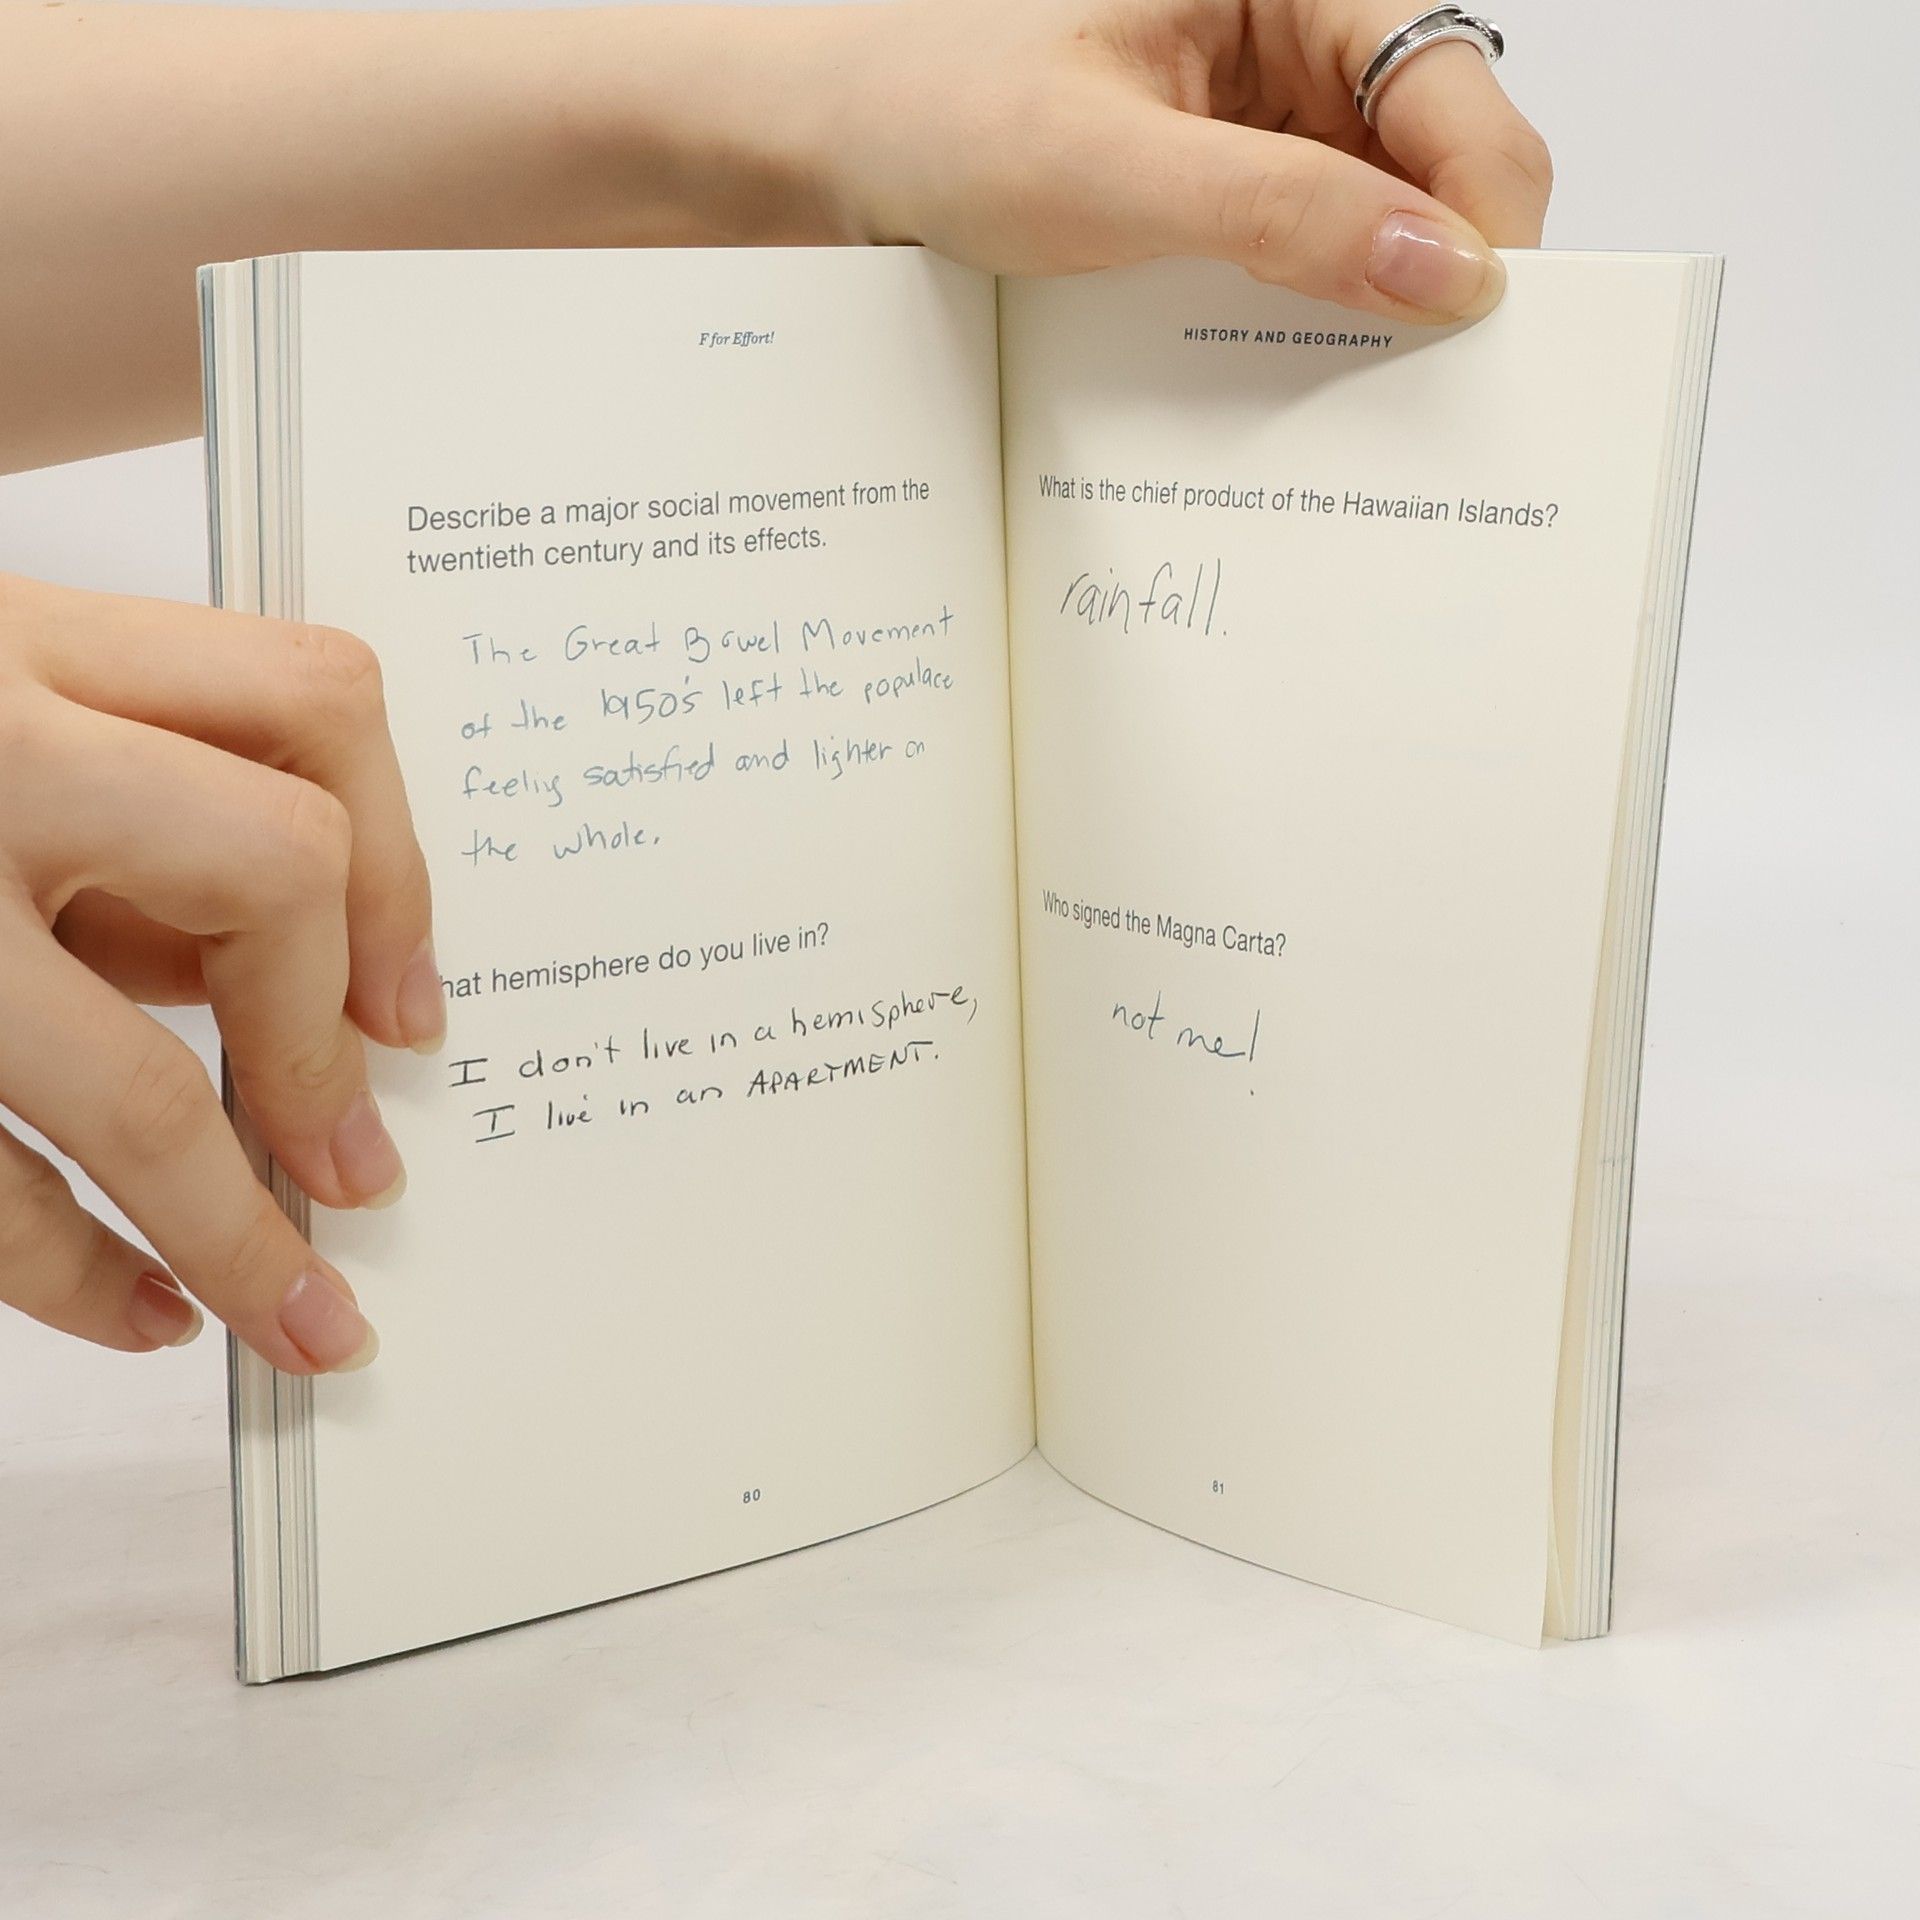 F for Effort!
Describe a major social movement from the
twentieth century and its effects.
The Great Bowel Movement
of the 1950's left the populace
feeling satisfied and lighter on
the whole.
hat hemisphere do you live in?
I don't live in a hemisphere,
I live in an APARTMENT.
80
HISTORY AND GEOGRAPHY
What is the chief product of the Hawaiian Islands?
rainfall.
Who signed the Magna Carta?
not me!
81